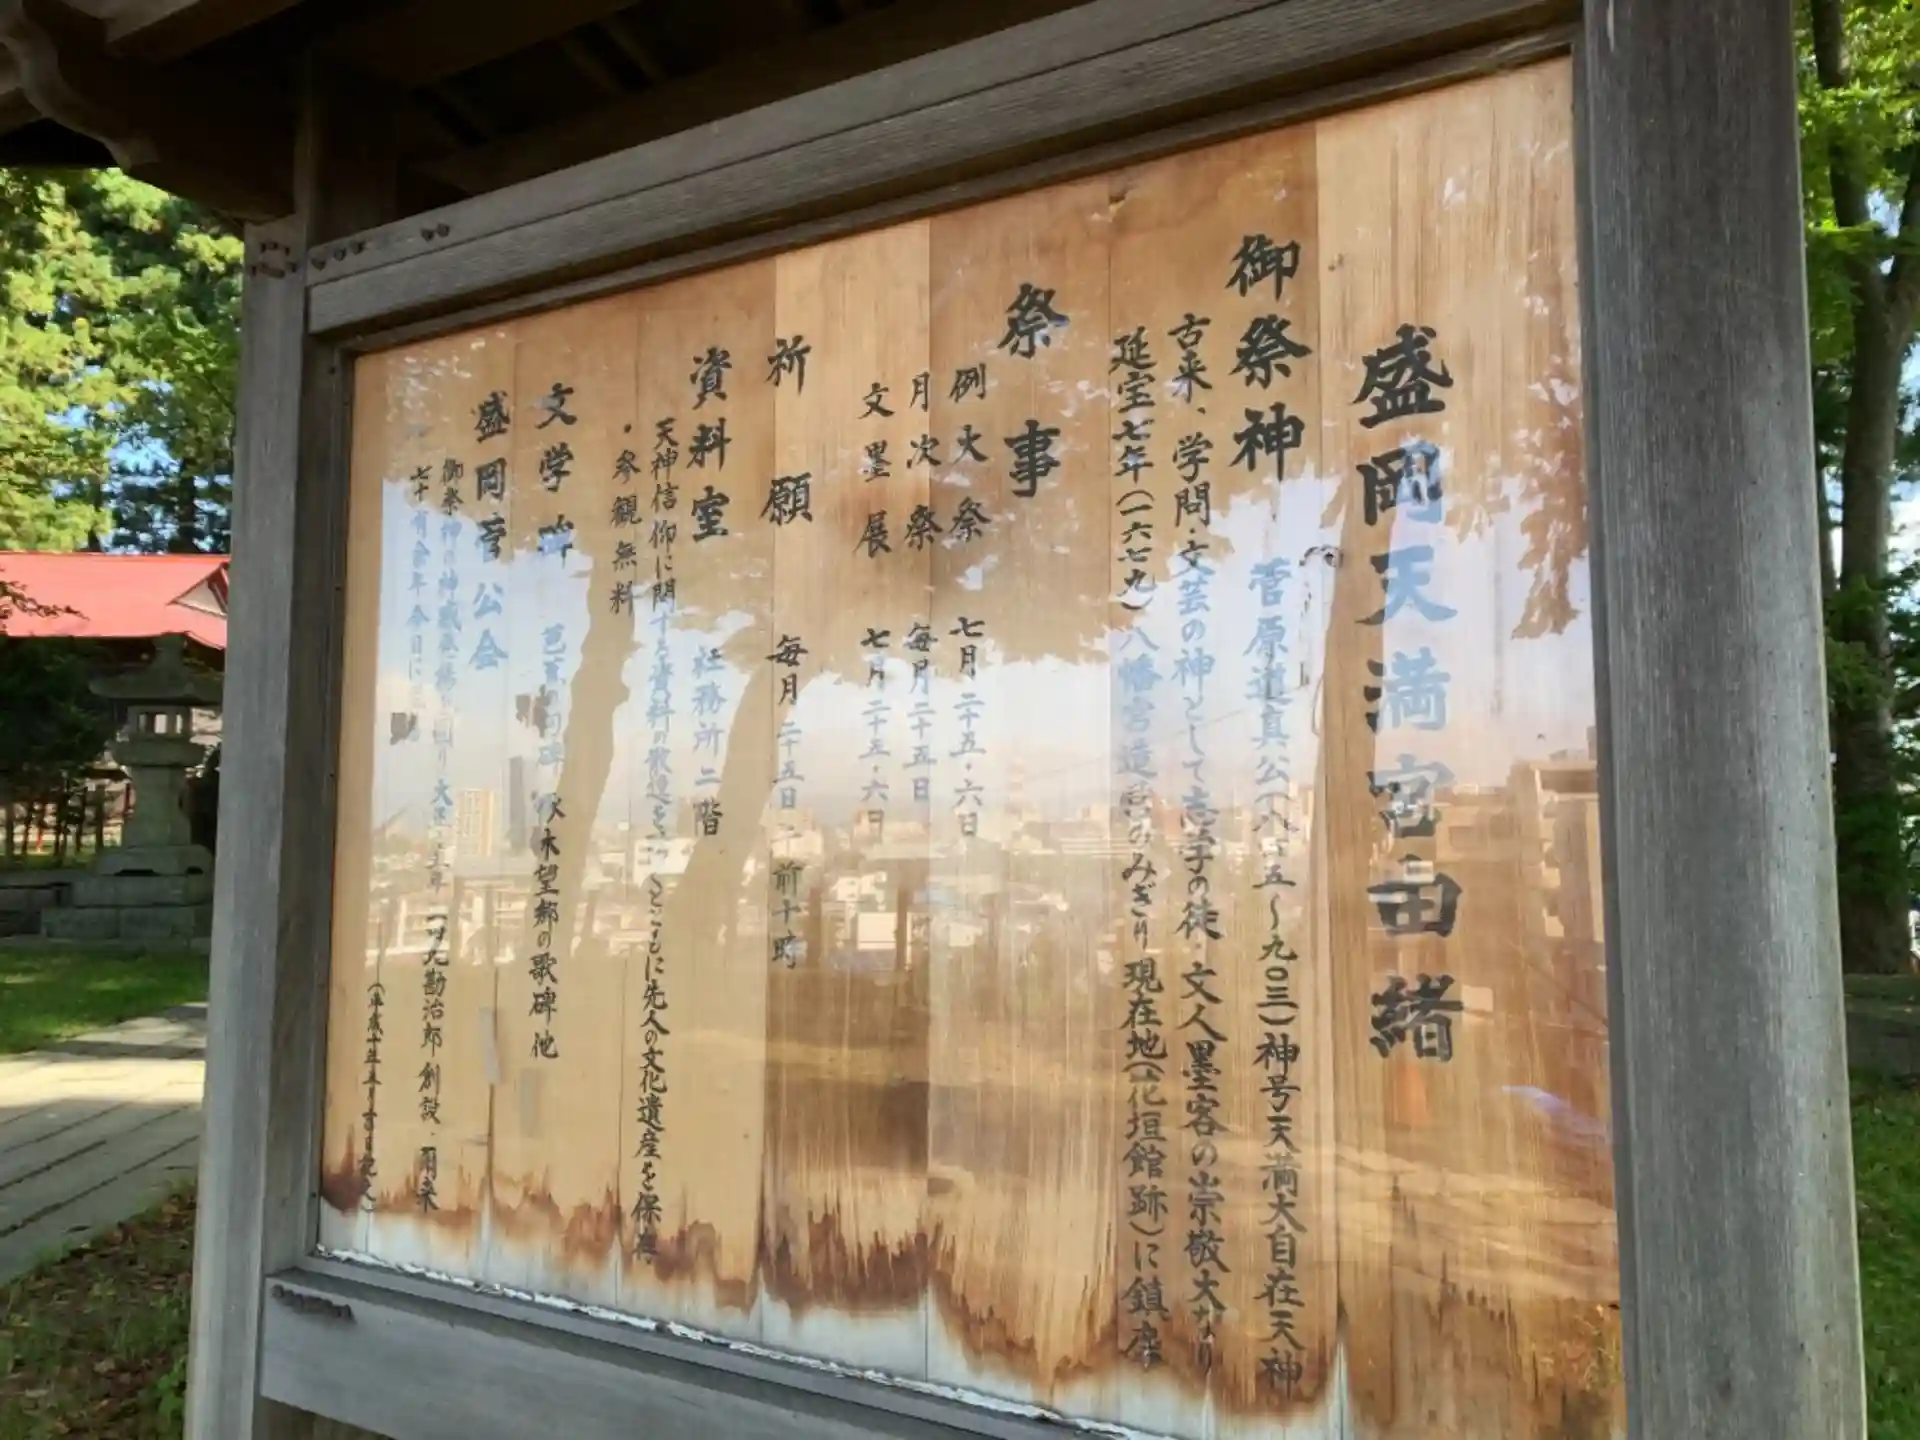 盛岡天満宮由緒
御祭神
菅原道真公(八四五〜九〇三)神号天満大自在天神
古来、学問・文芸の神として志学の徒・文人墨客の崇敬大なり
延宝七年(一六七九)八幡宮造営のみぎり現在地(花垣館跡)に鎮座
祭事
例大祭 七月二十五・六日
月次祭 毎月二十五日
文墨展 七月二十五・六日
祈願 毎月二十五日午前十時
資料室 社務所二階
天神信仰に関する資料の
とともに先人の文化遺産を保存
・参観無料
文学碑 芭蕉の句碑 啄木望郷の歌碑 他
盛岡菅公会
御祭神の神威
勘治郎 創設・爾来
七十有余年 今日に
(平成十年五月 日記文)